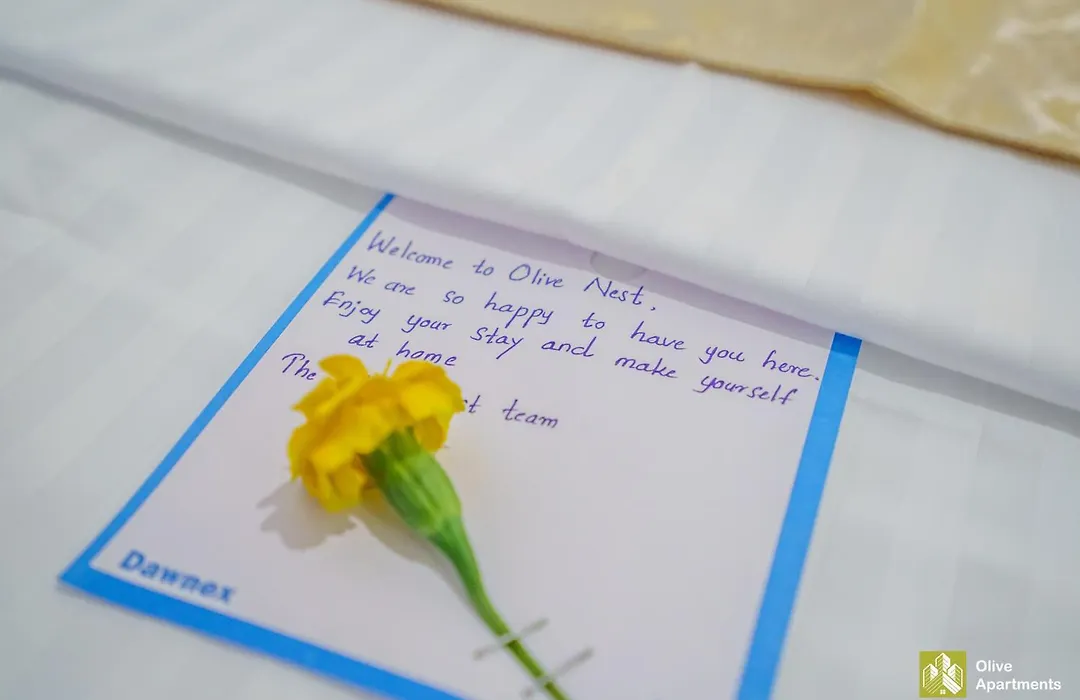 Welcome to Olive Nest,
We are so happy to have you here.
Enjoy your stay and make yourself
at home
The st team
Dawnex
Olive
Apartments